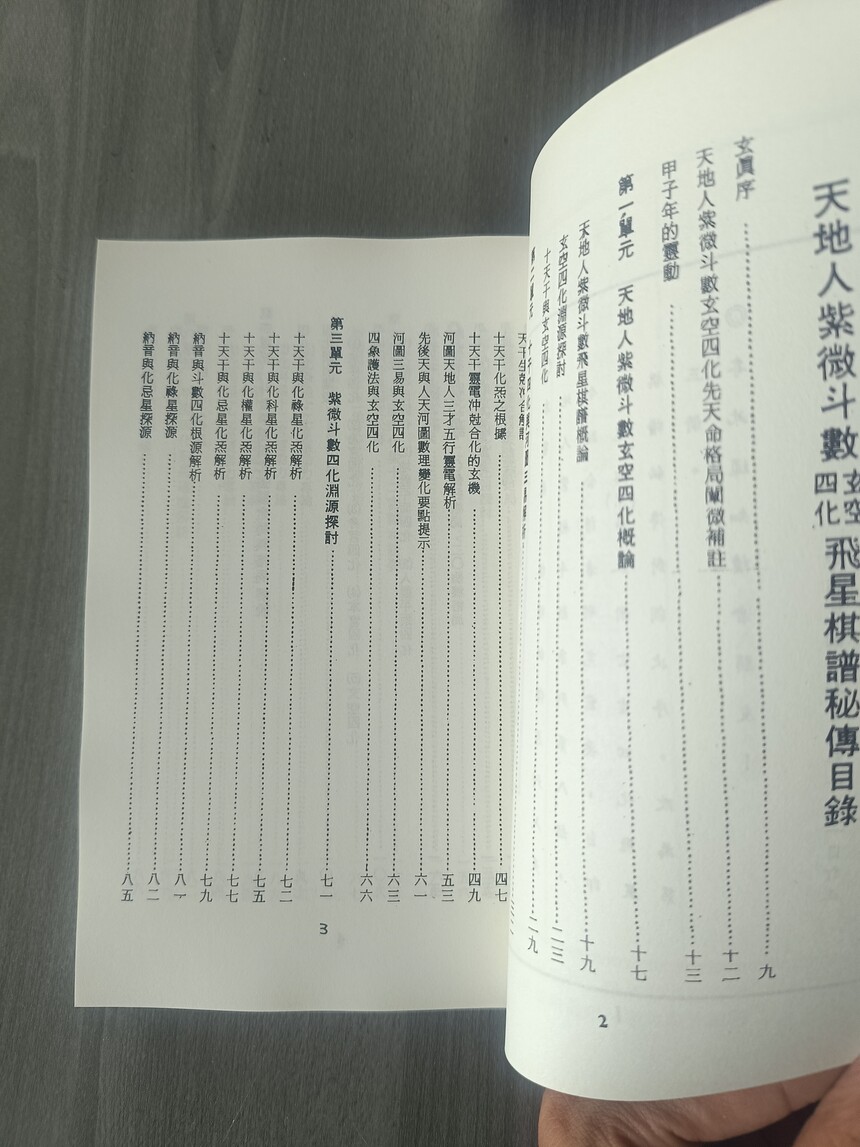 天地人紫微斗數玄空四化飛星棋譜秘傳目錄
玄眞序……九
天地人紫微斗數玄空四化先天命格局闡微補註……十二
甲子年的靈動……十三
第一單元　天地人紫微斗數玄空四化概論……十七
天地人紫微斗數飛星棋譜概論……十九
玄空四化淵源探討……二三
十天干與玄空四化……二九
2
天干生剋沖合解説
十天干化炁之根據……四七
十天干靈電冲尅合化的玄機……四九
河圖天地人三才五行靈電解析……五三
先後天與人天河圖數理變化要點提示……六一
河圖三易與玄空四化……六三
四象護法與玄空四化……六六
第三單元　紫微斗數四化淵源探討……七一
十天干與化祿星化炁解析……七二
十天干與化科星化炁解析……七五
十天干與化權星化炁解析……七七
十天干與化忌星化炁解析……七九
納音與斗數四化根源解析……八一
納音與化祿星探源……八二
納音與化忌星探源……八五
3